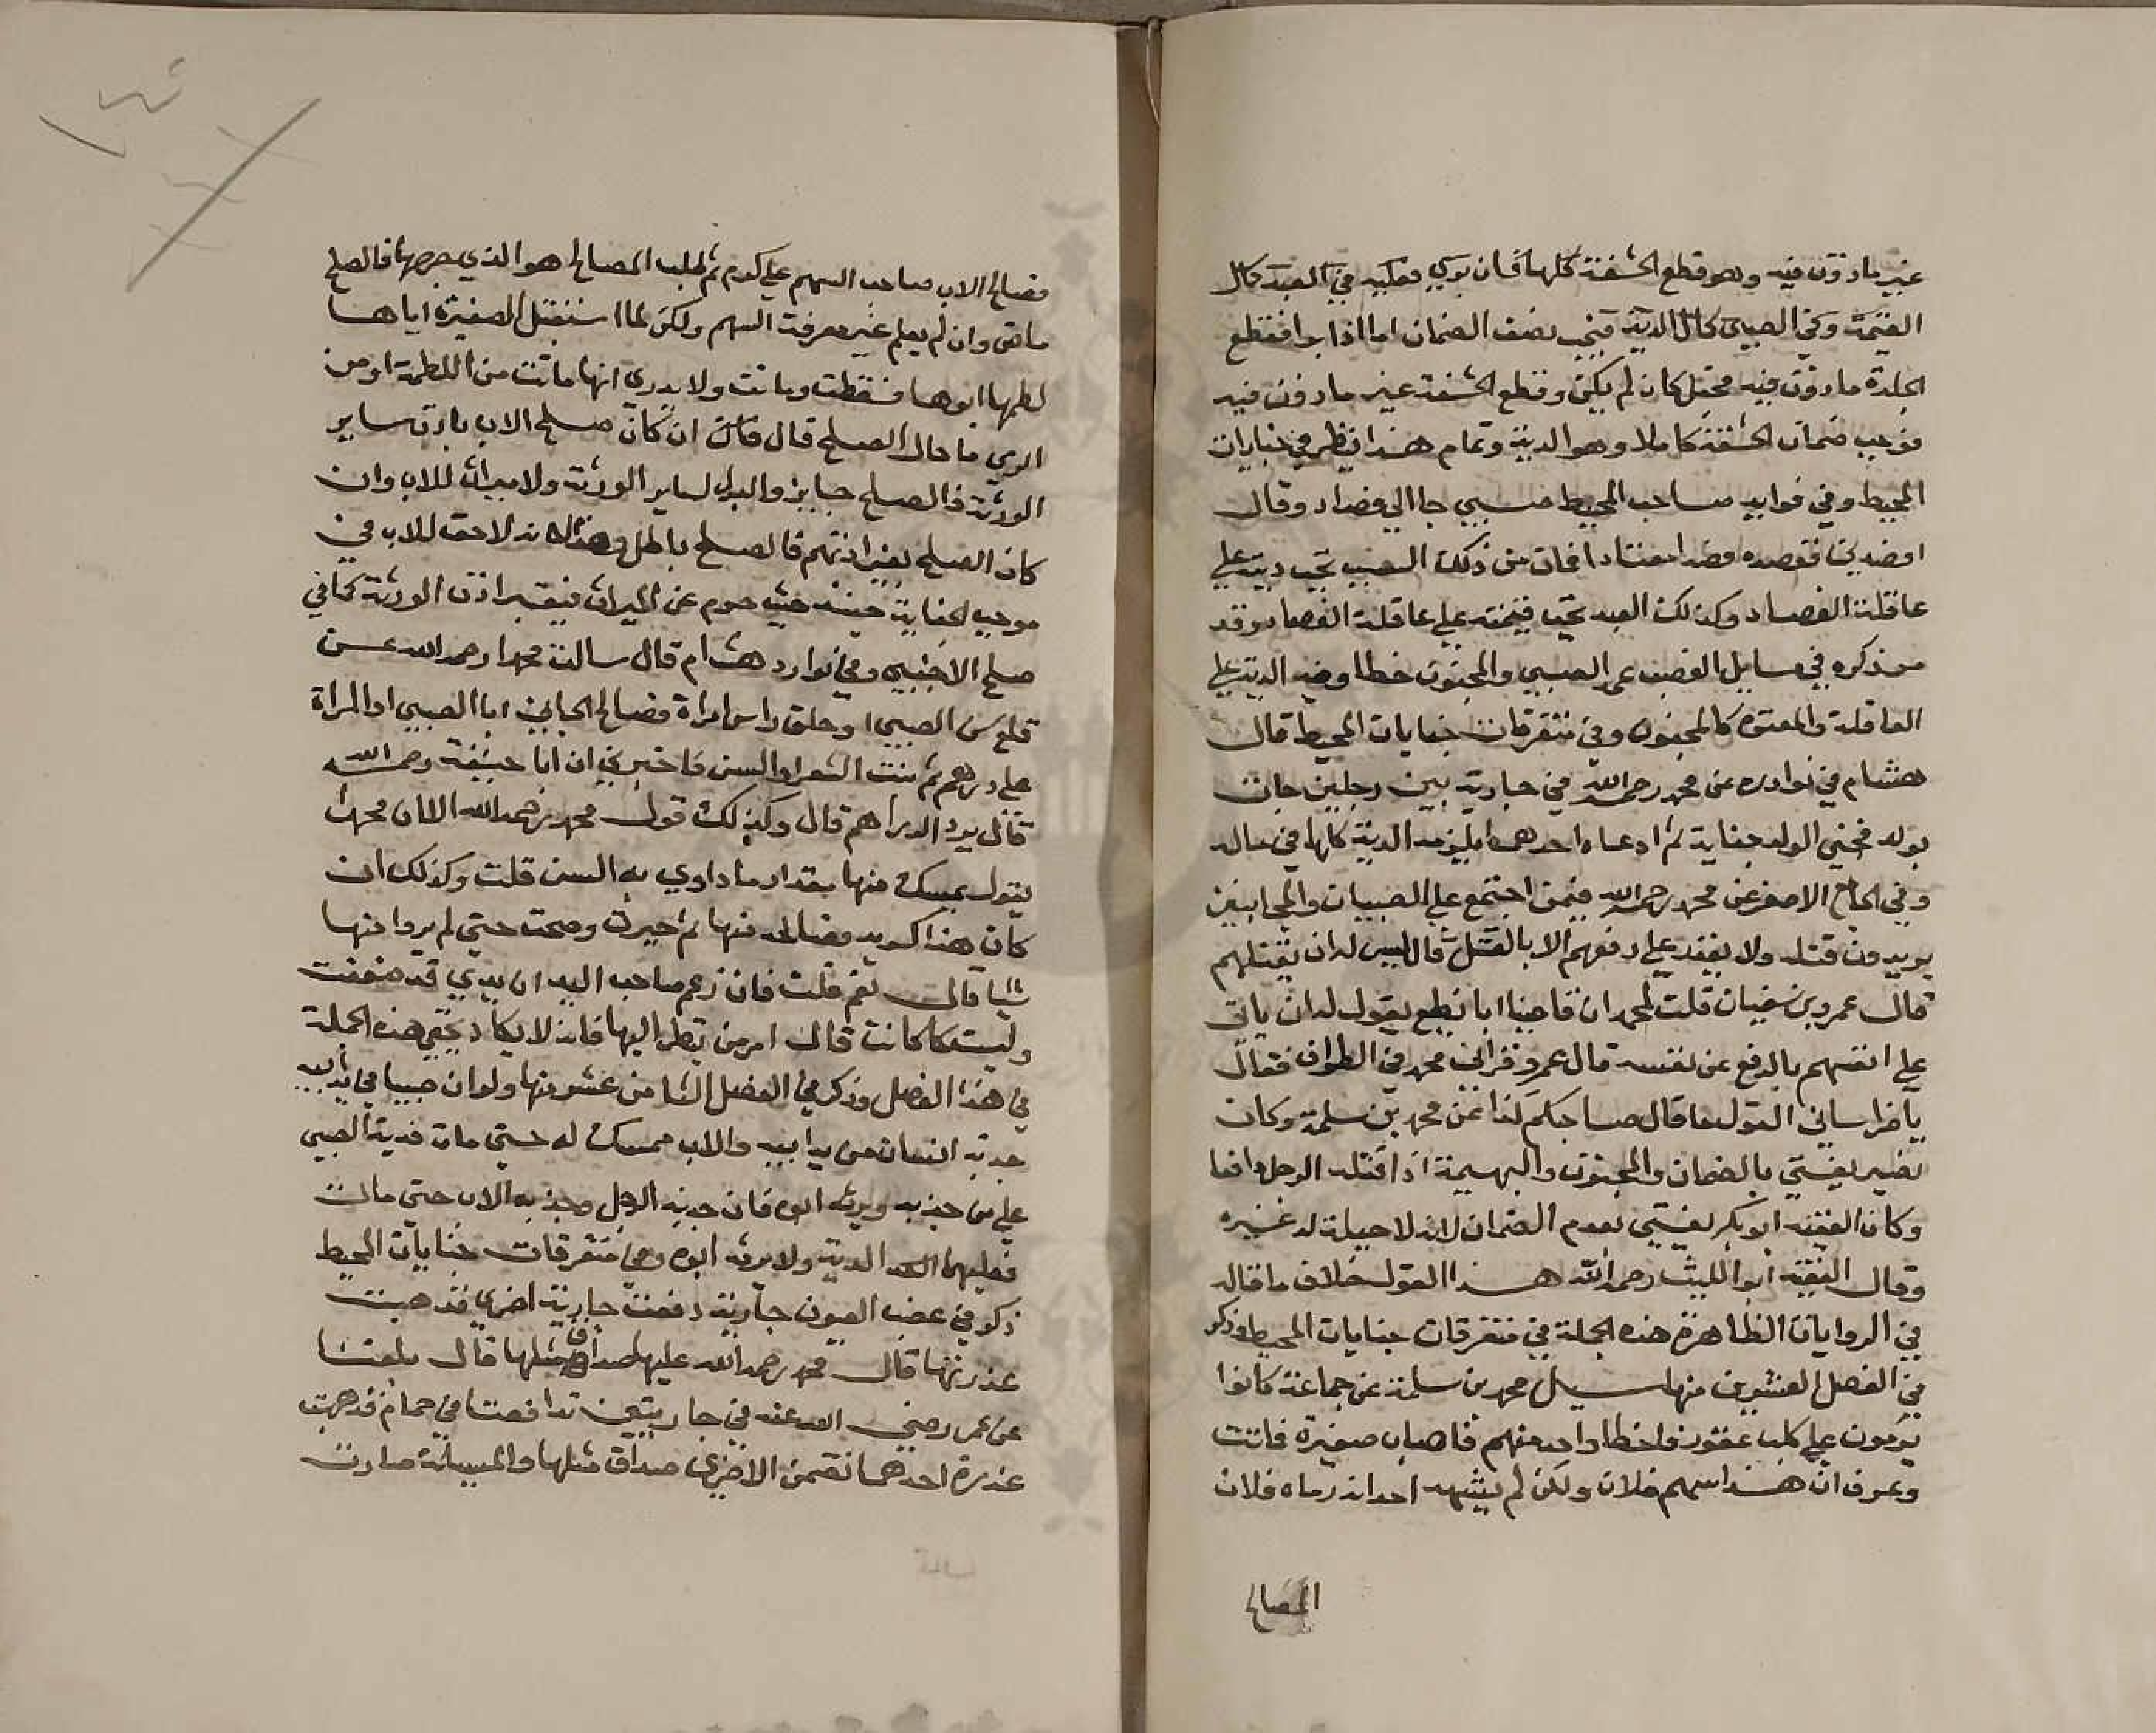 غير ماذون فيه وهو قطع الحشفة كلها فان بري فعليه في العبد كمال
القيمة وفي الصبي كمال الدية فيجب نصف الضمان اما اذا برا فقطع
الجلدة ماذون فيه فجعل كان لم يكن وقطع الحشفة غير ماذون فيه
فوجب ضمان الحشفة كاملا وهو الدية وتمام هذا ينظر في جنايات
المحيط وفي فوايد صاحب المحيط صبي جا الي فصاد وقال
افصدني ففصده فصدا معتادا فمات من ذلك السبب تجب ديته علي
عاقلة الفصاد وكذلك العبد تجب قيمته علي عاقلة الفصاد وقد
مر ذكره في مسايل الغصب عمد الصبي والمجنون خطا وفيه الدية علي
العاقلة والمعتوه كالمجنون وفي متفرقات جنايات المحيط قال
هشام في نوادره عن محمد رحمه الله في جارية بين رجلين جات
بولد فجني الولد جناية ثم ادعاه احدهما يلزمه الدية كلها في ماله
وفي الجامع الاصغر عن محمد رحمه الله فيمن اجتمع علي الصبيان والمجانين
يريدون قتله ولا يقدر علي دفعهم الا بالقتل قال ليس له ان يقتلهم
قال عمرو بن سفيان قلت لمحمد ان قاضينا ابا مطيع يقول له ان ياتي
علي انفسهم بالدفع عن نفسه قال عمرو فراني محمد في الطواف فقال
يا خراساني القول ما قال صاحبكم كذا عن محمد بن سلمة وكان
نصير يفتي بالضمان والمجنون والبهيمة اذا قتله الرجل دافعا
وكان الفقيه ابو بكر يفتي بعدم الضمان لانه لا حيلة له غيره
وقال الفقيه ابو الليث رحمه الله هذا القول خلاف ما قاله
في الروايات الظاهرة هذه الجملة في متفرقات جنايات المحيط وذكر
في الفصل العشرين منها سيل محمد بن سلمة عن جماعة كانوا
يرمون علي كلب عقور فاخطا واحد منهم فاصاب صغيرة فماتت
وعرف ان هذا سهم فلان ولكن لم يشهد احد انه رماه فلان
المصالح
فصالح الاب صاحب السهم علي كرم ثم طلب المصالح هو الذي جرحها فالصلح
ماض وان لم يعلم غير معرفت السهم ولكن لما استقبل الصغيرة اياها
لطمها ابوها فسقطت وماتت ولا يدري انها ماتت من اللطمة او من
الرمي ما حال الصلح قال قال ان كان صلح الاب باذن ساير
الورثة فالصلح جايز والبدل لساير الورثة ولا ميراث للاب وان
كان الصلح بغير اذنهم فالصلح باطل وهذا لانه لا حق للاب في
موجب الجناية حينئذ حيث حرم عن الميراث فيعتبر اذن الورثة كما في
صلح الاجنبي وفي نوادر هشام قال سالت محمدا رحمه الله عن
قلع سن الصبي او حلق راس امراة فصالح الجاني ابا الصبي او المراة
علي دراهم ثم نبتت الشعر او السن فاخبرني ان ابا حنيفة رحمه الله
قال يرد الدراهم قال وكذلك قول محمد رحمه الله الا ان محمدا
يقول يمسك منها مقدار ما داوي به السن قلت وكذلك ان
كان هذا كسر يد فصالحه منها ثم جبرت وصحت حتي لم يروا منها
شيا قال نعم قلت فان زعم صاحب اليد ان يدي قد ضعفت
وليست كما كانت قال امر من ينظر اليها فانه لا يكاد يخفي هذه الجملة
في هذا الفصل وذكر في الفصل الثامن عشر منها ولو ان صبيا في يد ابيه
جذبه انسان من يد ابيه والاب ممسك له حتي مات فدية الصبي
علي من جذبه ويرثه ابوه فان جذبه الرجل وجذبه الاب حتي مات
فعليهما الدية ولا يرثه ابوه وفي متفرقات جنايات المحيط
ذكر في غصب العيون جارية دفعت جارية اخري فذهبت
عذرتها قال محمد رحمه الله عليها صداق مثلها قال بلغنا
عن عمر رضي الله عنه في جاريتين تدافعتا في حمام فذهبت
عذرة احدهما تضمن الاخري صداق مثلها والمسيلة صارت